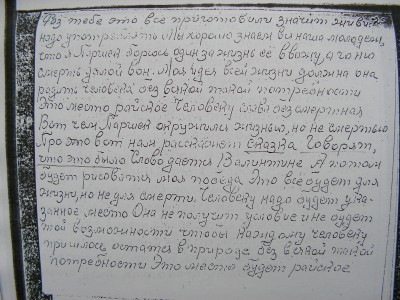 Уже тебе это все приготовили значит живи. Не
надо употреблять Мы хорошо знаем вы наша молодежь,
что я Паршек борюсь один за жизнь её ввожу, а гоню
смерть долой вон. Моя идея всей жизни должна она
родить человека без всякой такой потребности
Это место райское Человеку слава бессмертная
Вот чем Паршек окружился жизнью, но не смертью
Про это вот нам расскажет сказка Говорят,
что это было Слово дается Валентине А потом
будет рисоваться моя победа Это всё будет для
жизни, но не для смерти. Человеку надо будет ука-
занное место Она не получит условие и не будет
той возможности чтобы каждому человеку
пришлось остатся в природе без всякой такой
потребности Это место будет райское